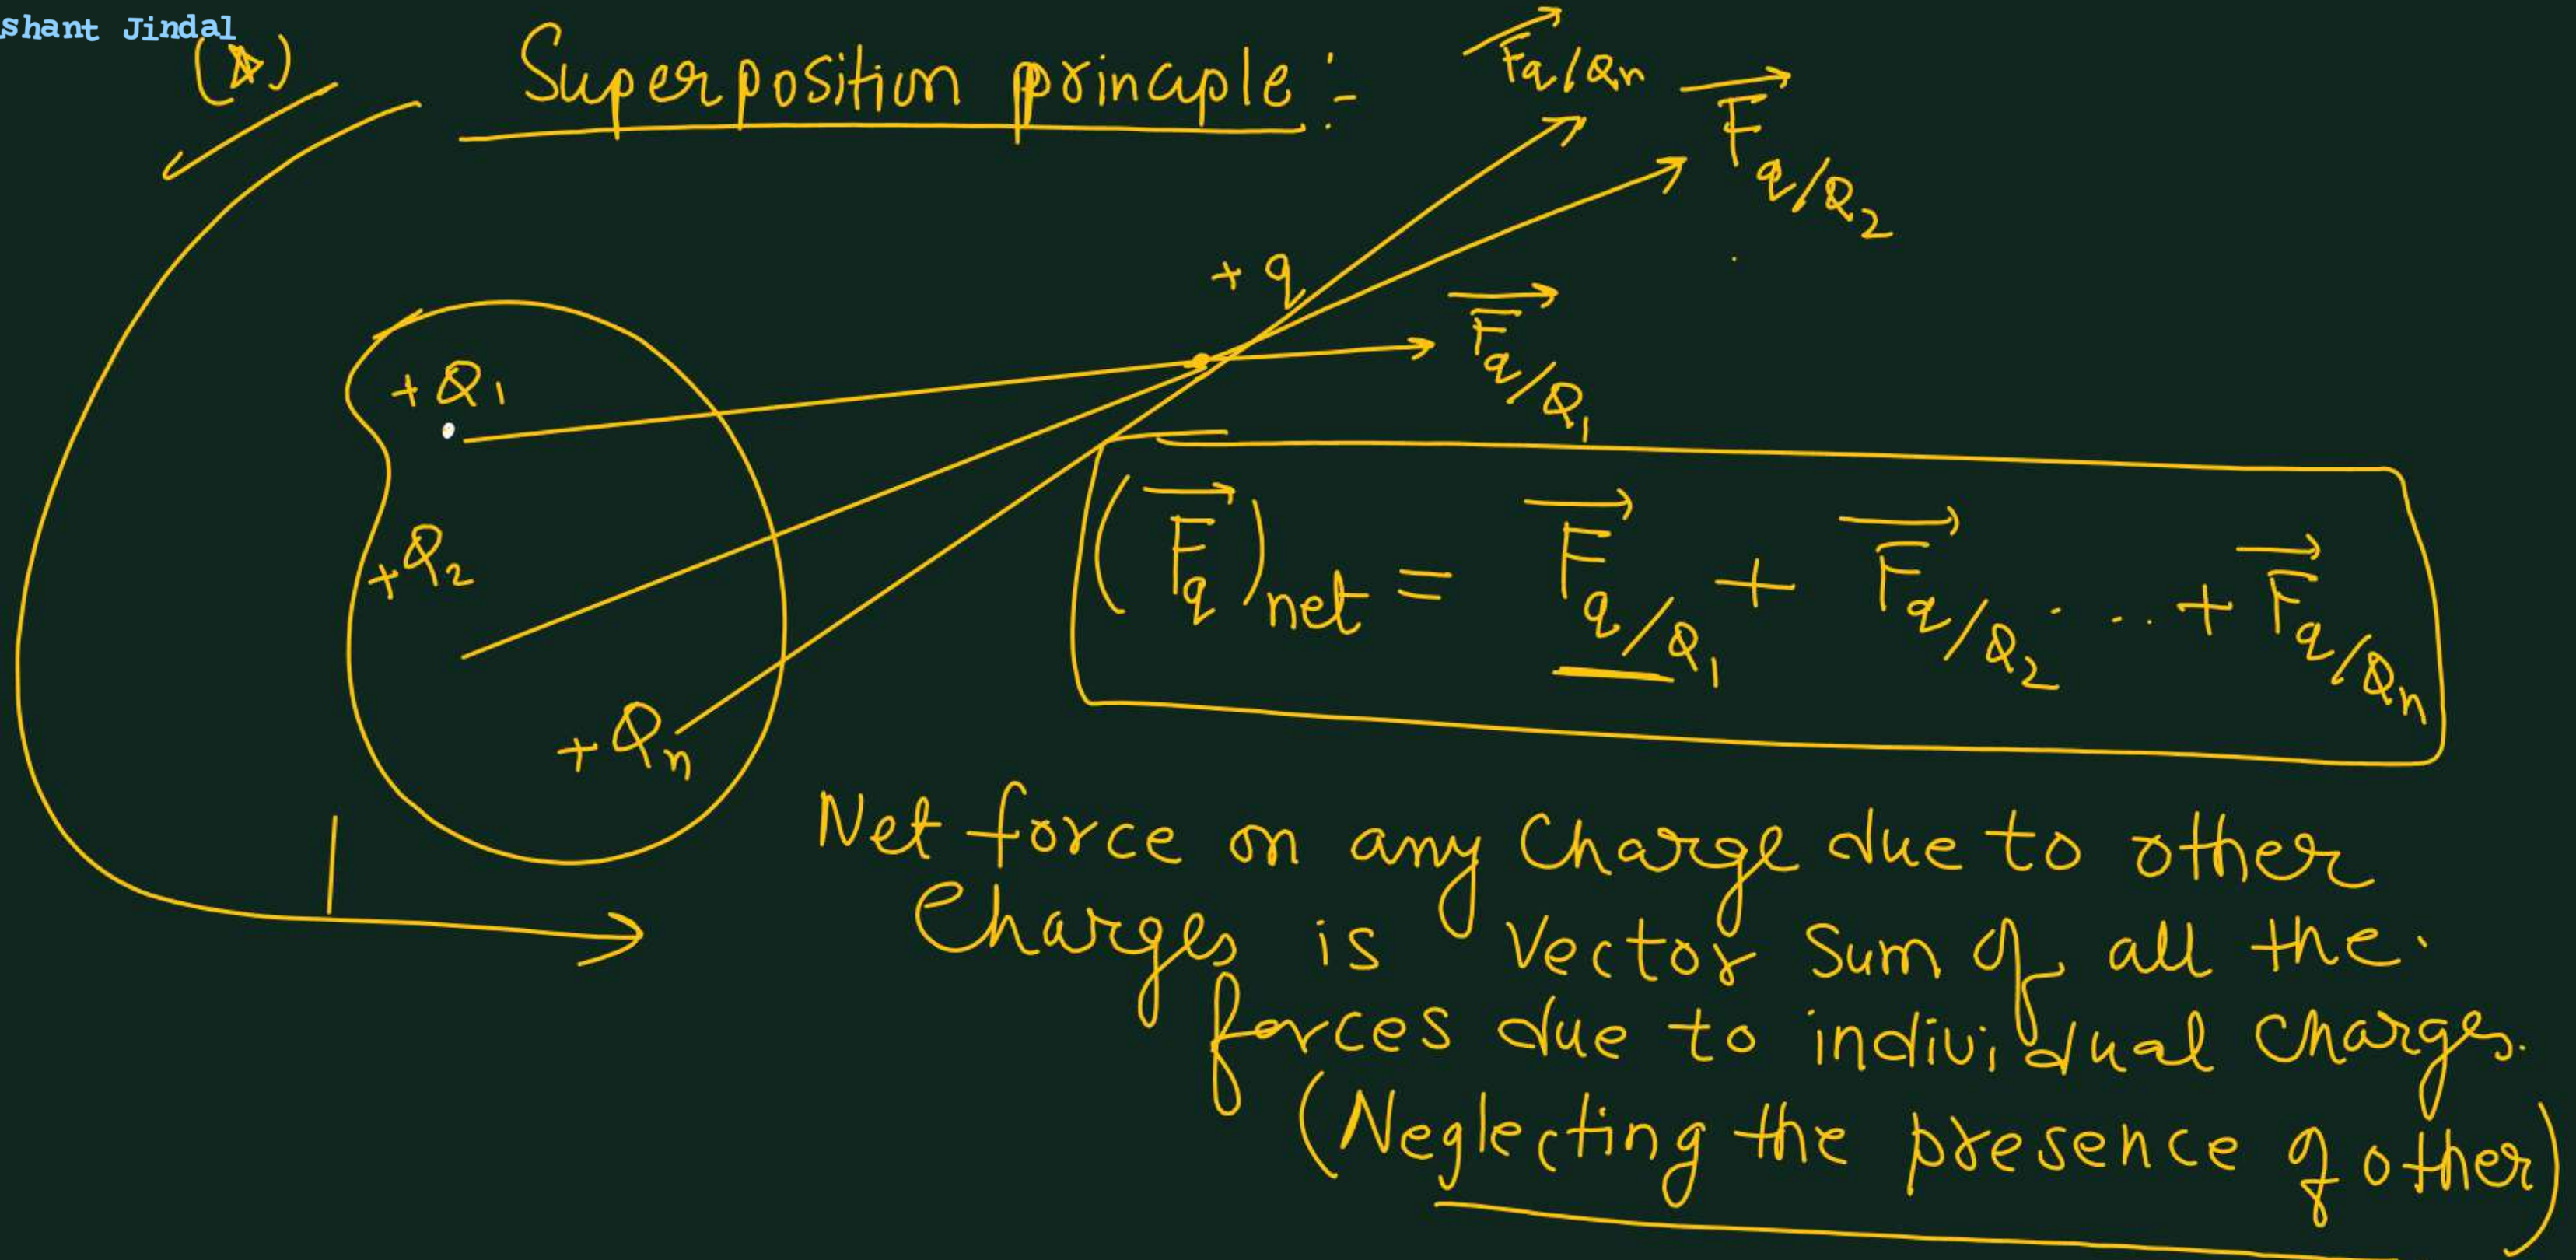 shant Jindal
(☆) Superposition principle :-
F⃗q/Qn
F⃗q/Q₂
+ q
F⃗q/Q₁
+ Q₁
+Q₂
+ Qn
(F⃗q)net = F⃗q/Q₁ + F⃗q/Q₂ ... + F⃗q/Qn
Net force on any Charge due to other
Charges is Vector Sum of all the
forces due to individual Charges.
(Neglecting the presence of other)